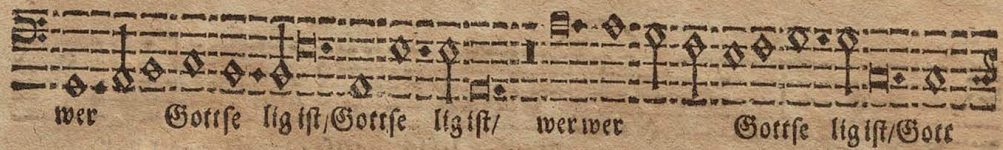 wer Gottse lig ist/Gottse lig ist/ wer wer Gottse lig ist/Gott